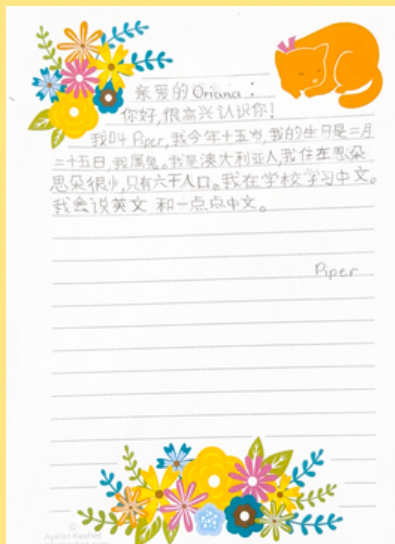 亲爱的 Oriana：
你好，很高兴认识你！
我叫 Piper，我今年十五岁，我的生日是二月
二十五日，我属兔。我是澳大利亚人，我住在思朵
思朵很小，只有六千人口。我在学校学习中文。
我会说英文 和一点点中文。
Piper
©
Ayelet Keshet